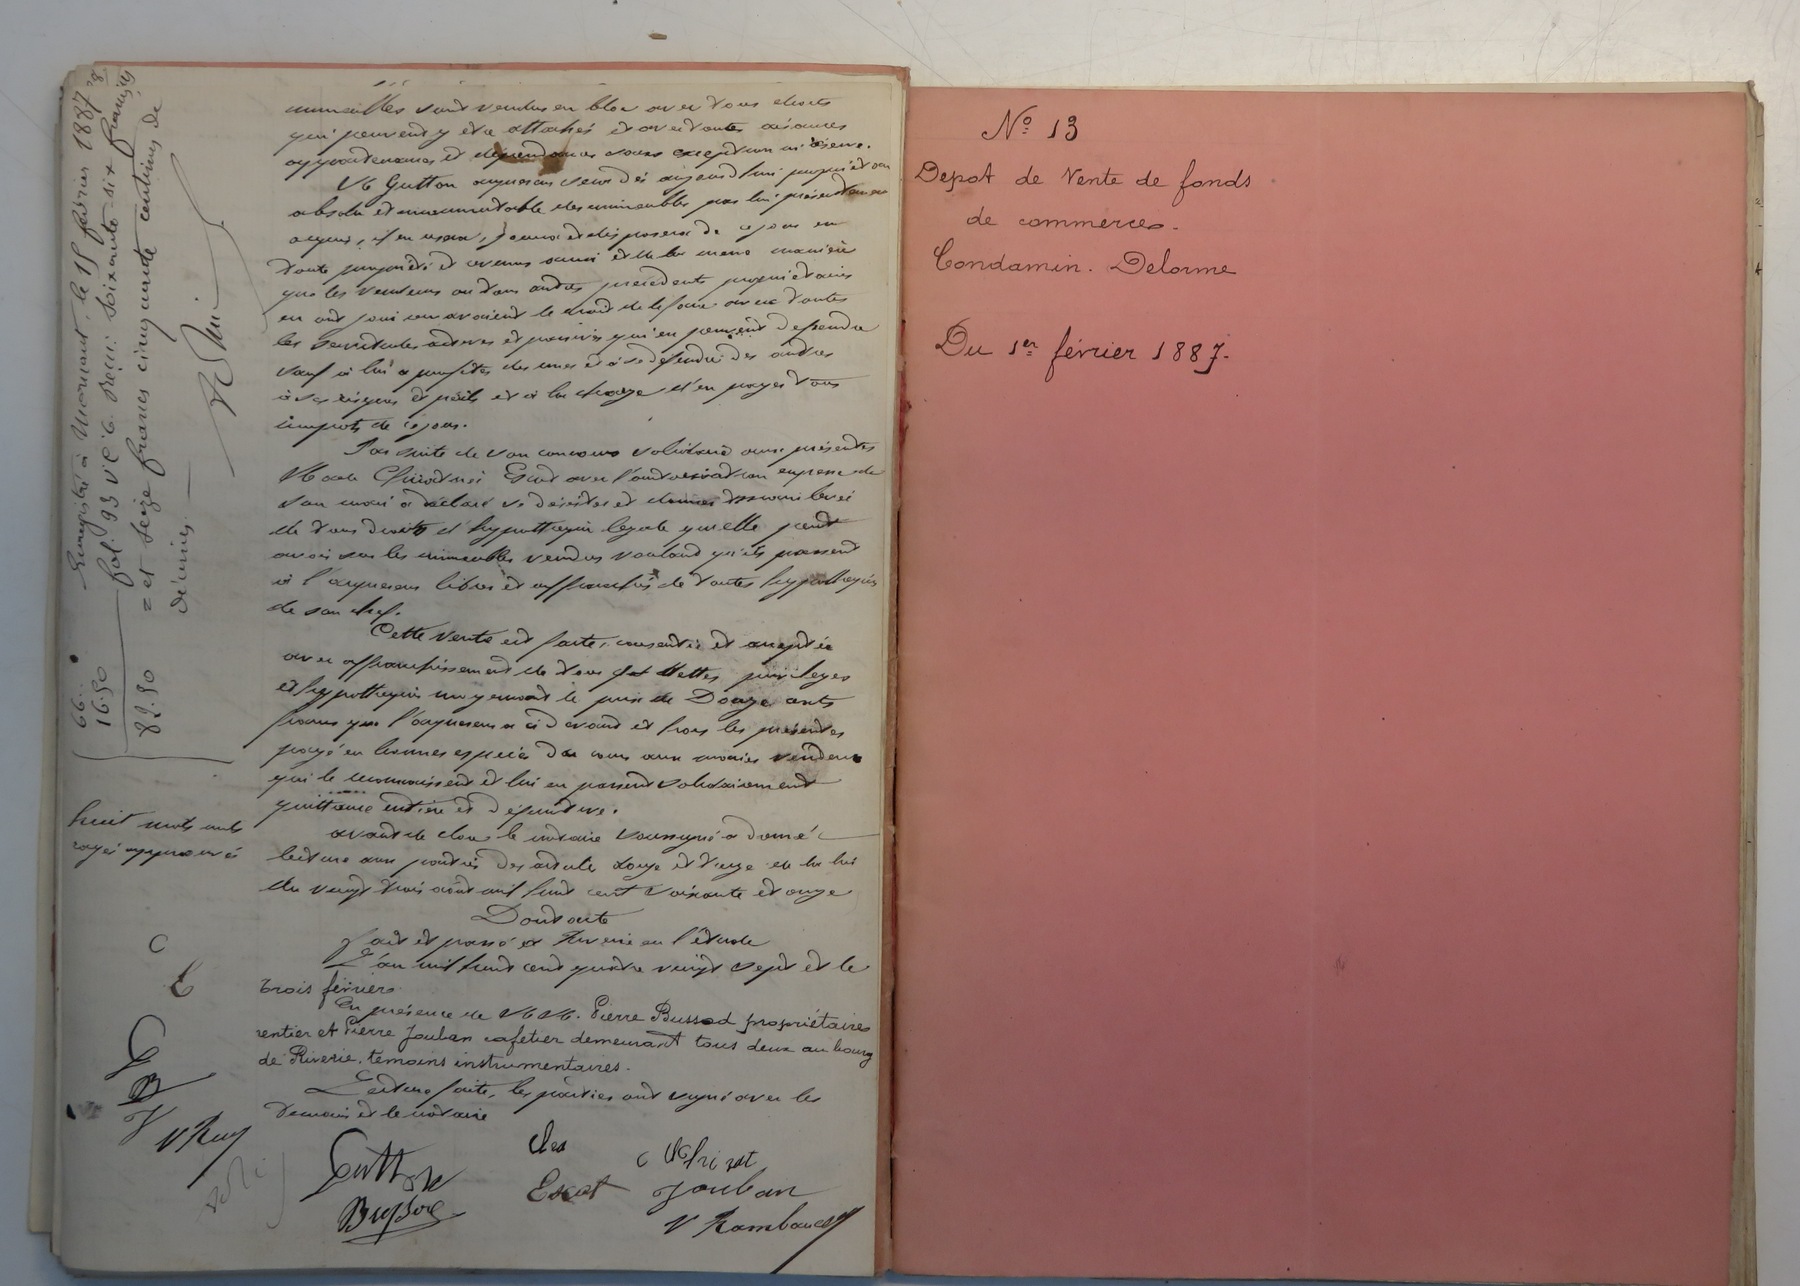 immeubles sont vendus en bloc avec tous droits
qui peuvent y être attachés et avec toutes aisances
appartenances et dépendances sans exception ni réserve.
M Gutton acquéreur sera dès aujourd'hui propriétaire
absolu et incommutable des immeubles par lui présentement
acquis, il en usera, jouira et disposera de ce jour en
toute propriété et revenus aussi et de la même manière
que les vendeurs ou tous autres précédents propriétaires
en ont joui ou avaient le droit de le faire avec toutes
les servitudes actives et passives qui en peuvent dépendre
sauf à lui à profiter des unes et à se défendre des autres
à ses risques et périls et à la charge d'en payer tous
impôts de ce jour.
Par suite de son concours solidaire aux présentes
née Escot avec l'autorisation expresse de
son mari a déclaré se désister et donner mainlevée
de tous droits d'hypothèque légale qu'elle peut
avoir sur les immeubles vendus voulant qu'ils passent
à l'acquéreur libres et affranchis de toutes hypothèques
de son chef.
Cette vente est faite, consentie et acceptée
avec affranchissement de tous dettes privilèges
et hypothèques moyennant le prix de Douze cents
francs que l'acquéreur a ci devant et hors les présentes
payé en bonnes espèces du cours aux mariés vendeurs
qui le reconnaissent et lui en passent solidairement
quittance entière et définitive.
avant de clore le notaire soussigné a donné
lecture aux parties des articles douze et treize de la loi
du vingt trois août mil huit cent soixante et onze
Dont acte
Fait et passé à Riverie en l'étude
L'an mil huit cent quatre vingt sept et le
trois février.
En présence de MM. Pierre Bussod propriétaire
rentier et Pierre Jouban cafetier demeurant tous deux au bourg
de Riverie, temoins instrumentaires.
Lecture faite, les parties ont signé avec les
temoins et le notaire
Gutton
Escot
Jouban
V Rambaud
Enregistré à Mornant, le 15 février 1887
fol. 93 v° c. 6. Reçu: soixante-six francs
= et seize francs cinquante centimes de
décimes.
66..
16.50
82.50
huit mots nuls
rayés approuvés
C
E
G
B
J
V Ray
N° 13
Depot de Vente de fonds
de commerces.
Condamin. Delorme
Du 1er février 1887.